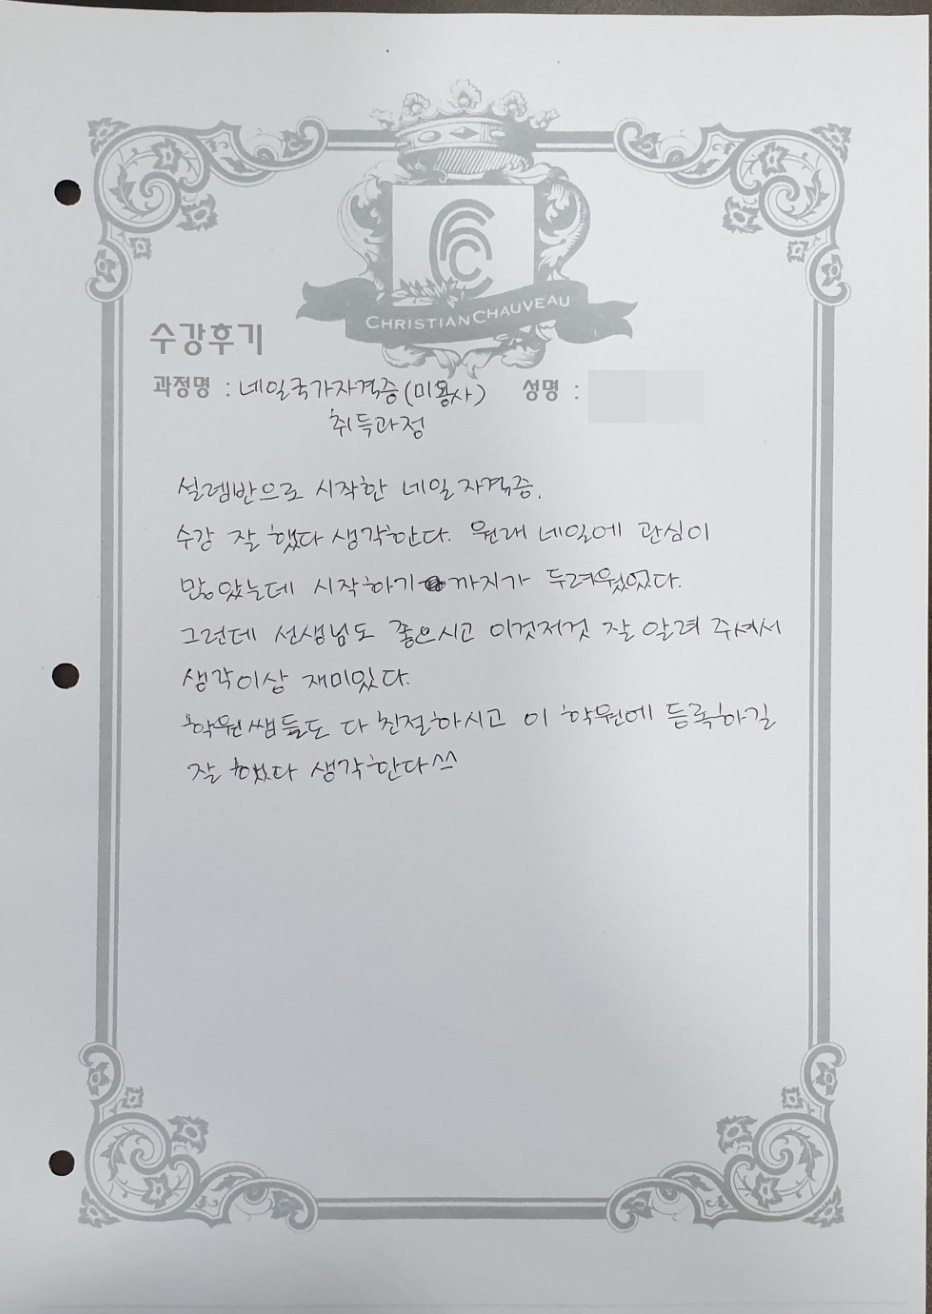 CHRISTIAN CHAUVEAU
수강후기
과정명 : 네일국가자격증(미용사) 성명 :
취득과정
설렘반으로 시작한 네일 자격증.
수강 잘 했다 생각한다. 원래 네일에 관심이
많았는데 시작하기 까지가 두려웠었다.
그런데 선생님도 좋으시고 이것저것 잘 알려 주셔서
생각이상 재미있다.
학원쌤들도 다 친절하시고 이 학원에 등록하길
잘 했다 생각한다^^